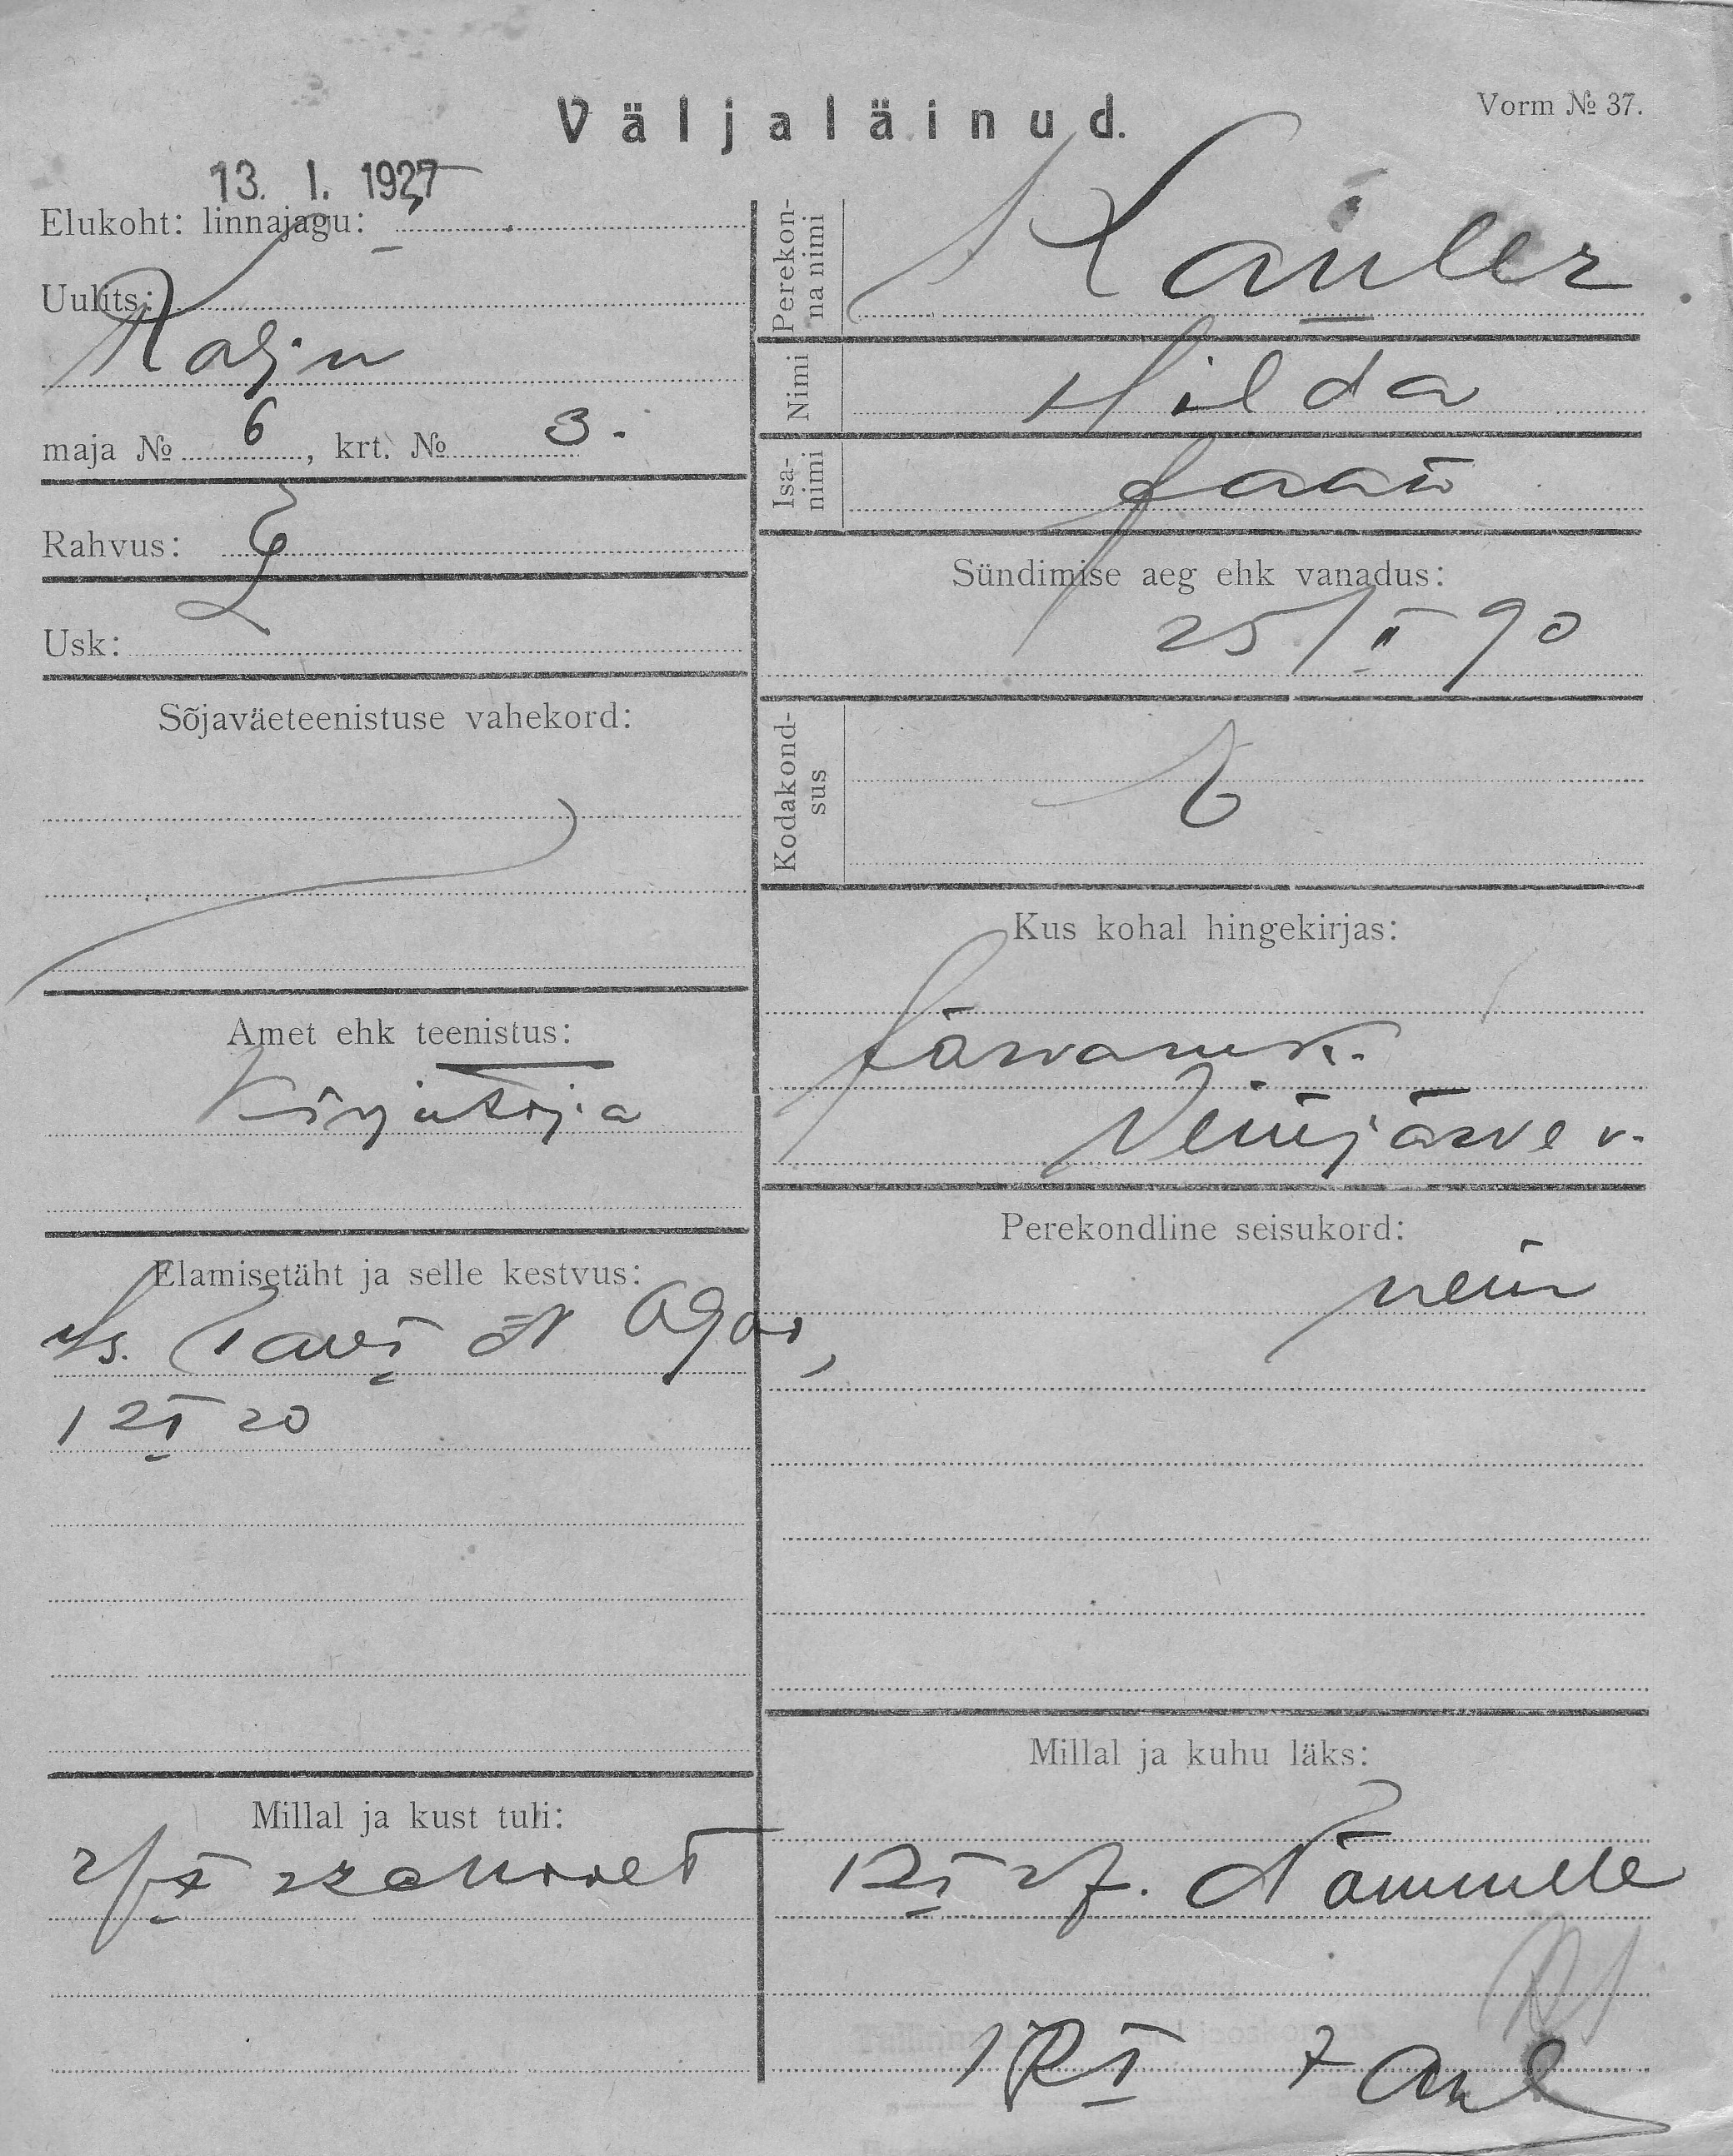 Väljaläinud.
Vorm № 37.
13. I. 1927
Elukoht: linnajagu:
Uulits:
Kalju
maja № 6, krt. № 3.
Rahvus: E
Usk: L
Sõjaväeteenistuse vahekord:
Amet ehk teenistus:
Kirjutaja
Elamisetäht ja selle kestvus:
12 I 20
Millal ja kust tuli:
Perekonna nimi
Nimi Hilda
Isanimi Jaan
Sündimise aeg ehk vanadus:
25/II 90
Kodakondsus E
Kus kohal hingekirjas:
Järvamk.
Perekondline seisukord:
neiu
Millal ja kuhu läks:
12 I 27. Nõmmele